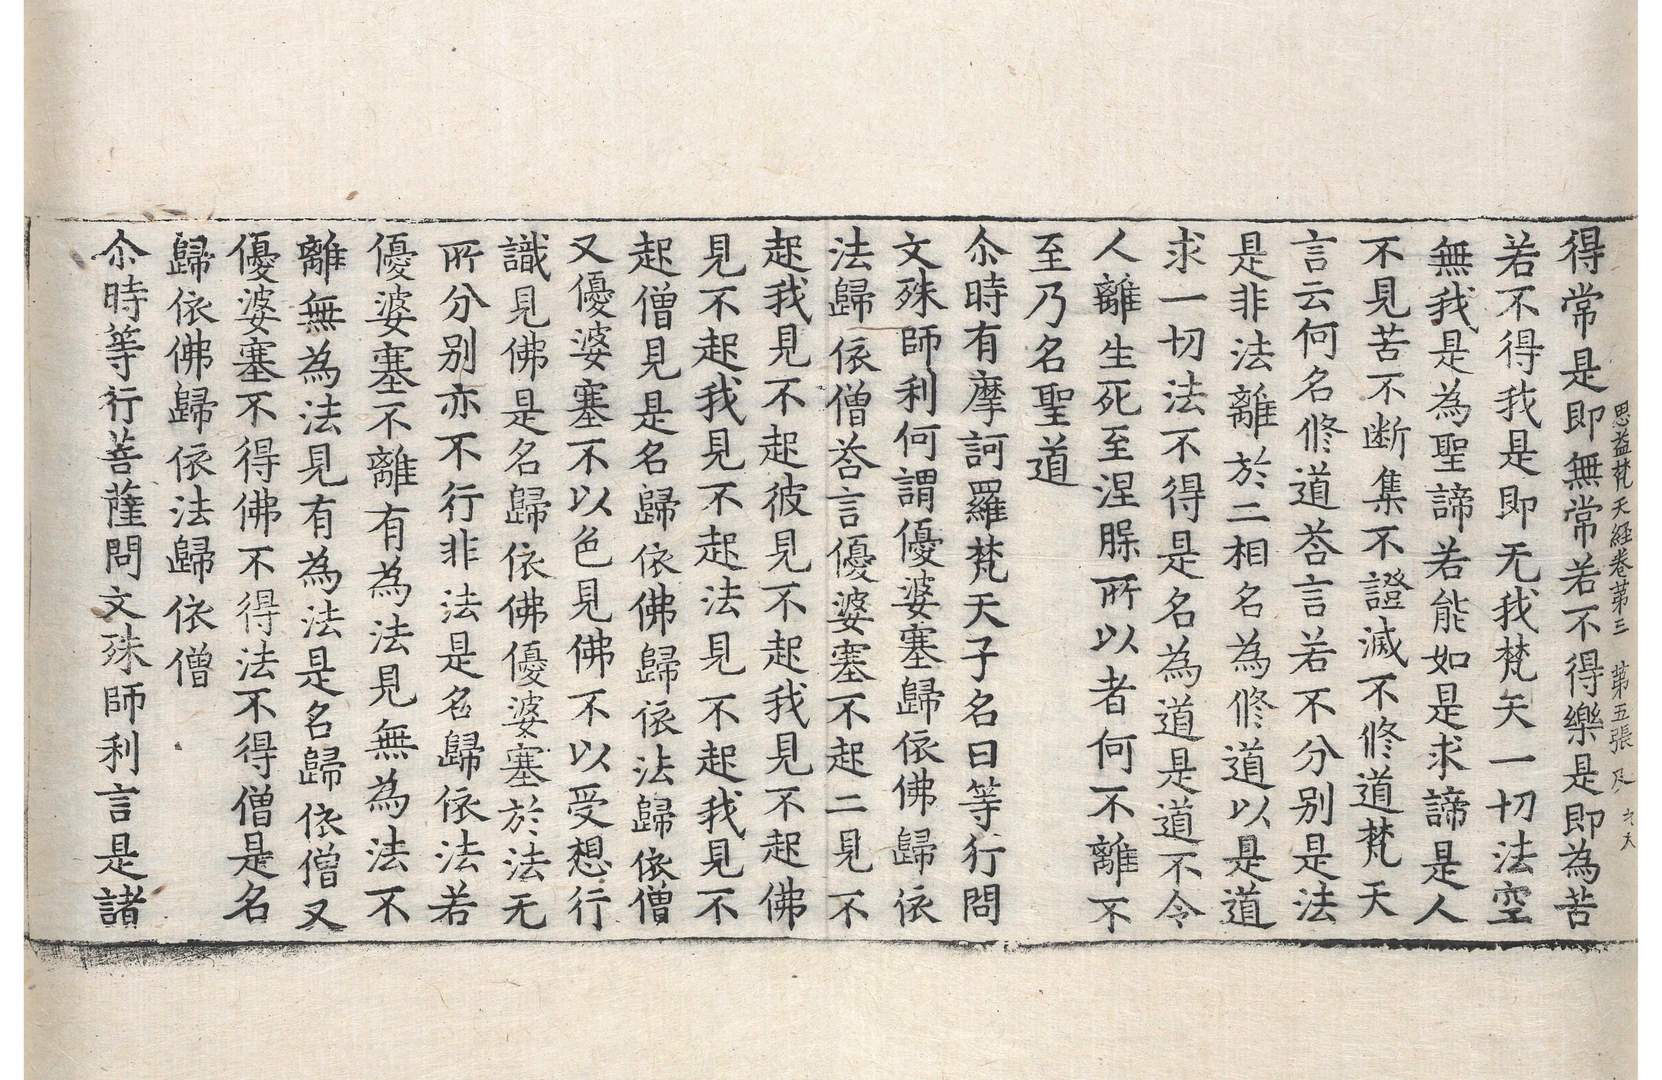 思益梵天經卷第三 第五張
得常是即無常若不得樂是即為苦
若不得我是即无我梵天一切法空
無我是為聖諦若能如是求諦是人
不見苦不断集不證滅不修道梵天
言云何名修道荅言若不分别是法
是非法離於二相名為修道以是道
求一切法不得是名為道是道不令
人離生死至涅䐁所以者何不離不
至乃名聖道
尒時有摩訶羅梵天子名曰等行問
文殊師利何謂優婆塞歸依佛歸依
法歸依僧荅言優婆塞不起二見不
起我見不起彼見不起我見不起佛
見不起我見不起法見不起我見不
起僧見是名歸依佛歸依法歸依僧
又優婆塞不以色見佛不以受想行
識見佛是名歸依佛優婆塞於法无
所分别亦不行非法是名歸依法若
優婆塞不離有為法見無為法不
離無為法見有為法是名歸依僧又
優婆塞不得佛不得法不得僧是名
歸依佛歸依法歸依僧
尒時等行菩薩問文殊師利言是諸